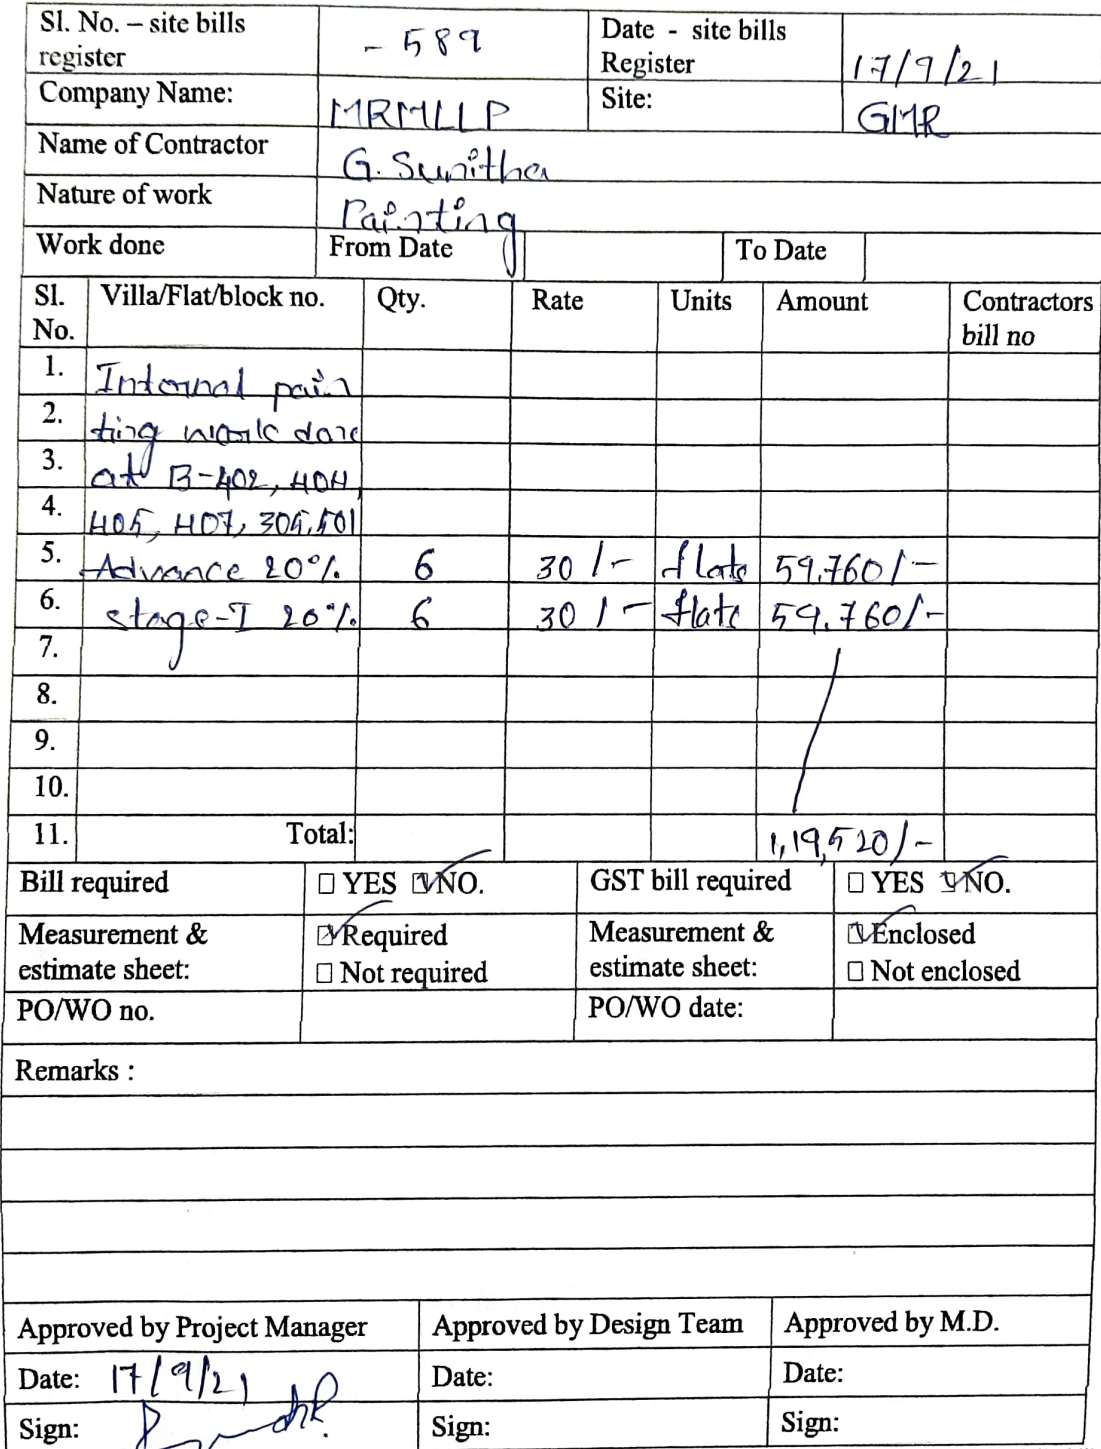 Sl. No. – site bills register - 589 Date - site bills Register 17/9/21
Company Name: MRMLLP Site: GMR
Name of Contractor G. Sunitha
Nature of work Painting
Work done From Date To Date
Sl. No. Villa/Flat/block no. Qty. Rate Units Amount Contractors bill no
1. Internal pain
2. ting work done
3. at B-402, 404,
4. 405, 407, 305, 501
5. Advance 20% 6 30/- flats 59,760/-
6. stage-I 20% 6 30/- flats 59,760/-
7.
8.
9.
10.
11. Total: 1,19,520/-
Bill required ☐ YES ☑ NO. GST bill required ☐ YES ☑ NO.
Measurement & estimate sheet: ☑ Required ☐ Not required Measurement & estimate sheet: ☑ Enclosed ☐ Not enclosed
PO/WO no. PO/WO date:
Remarks :
Approved by Project Manager Approved by Design Team Approved by M.D.
Date: 17/9/21 Date: Date:
Sign: Sign: Sign: